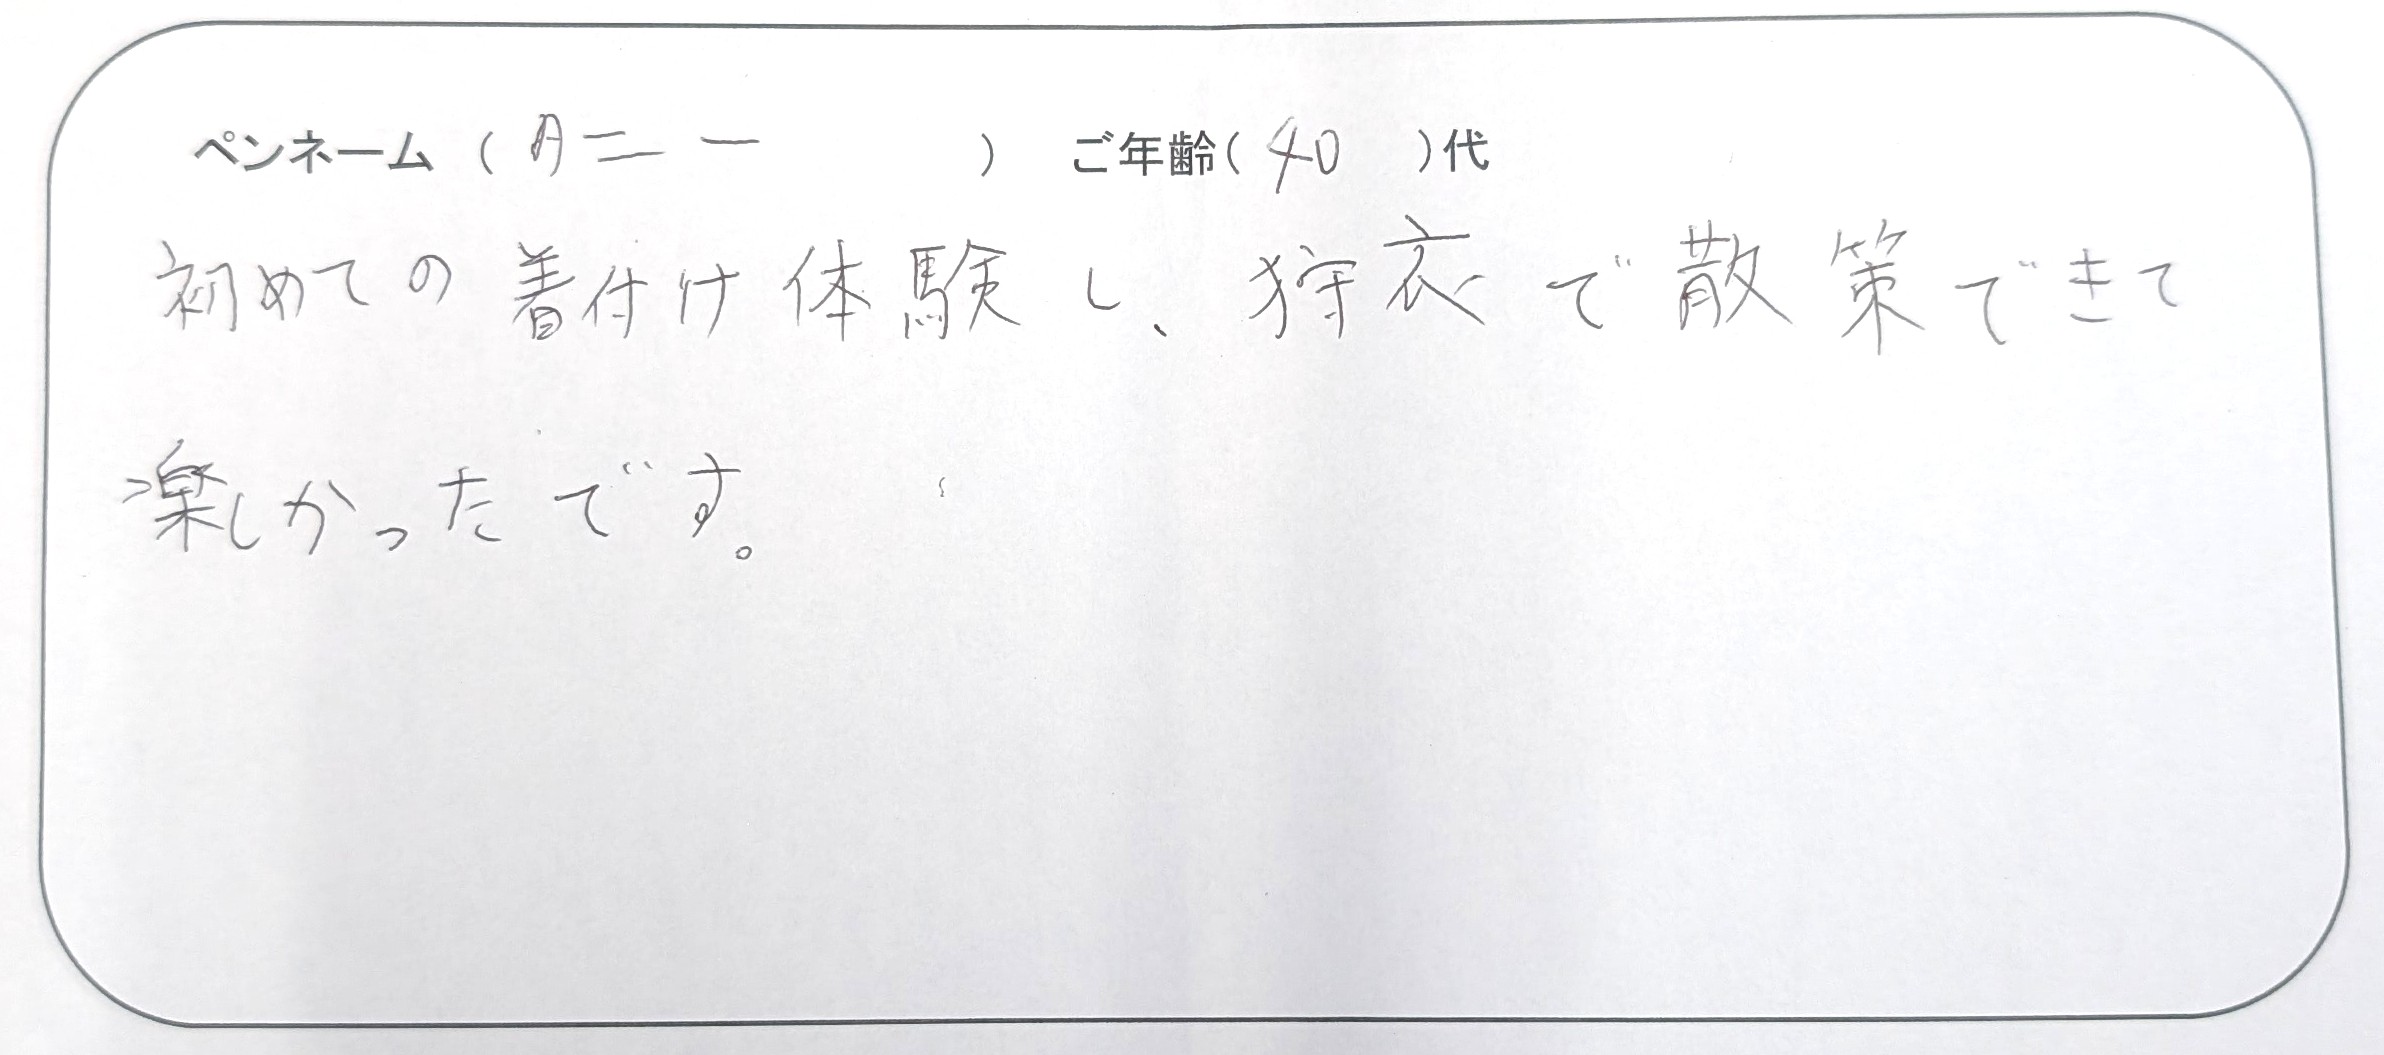 ペンネーム ( Aニー ) ご年齢( 40 )代
初めての着付け体験し、狩衣で散策できて
楽しかったです。